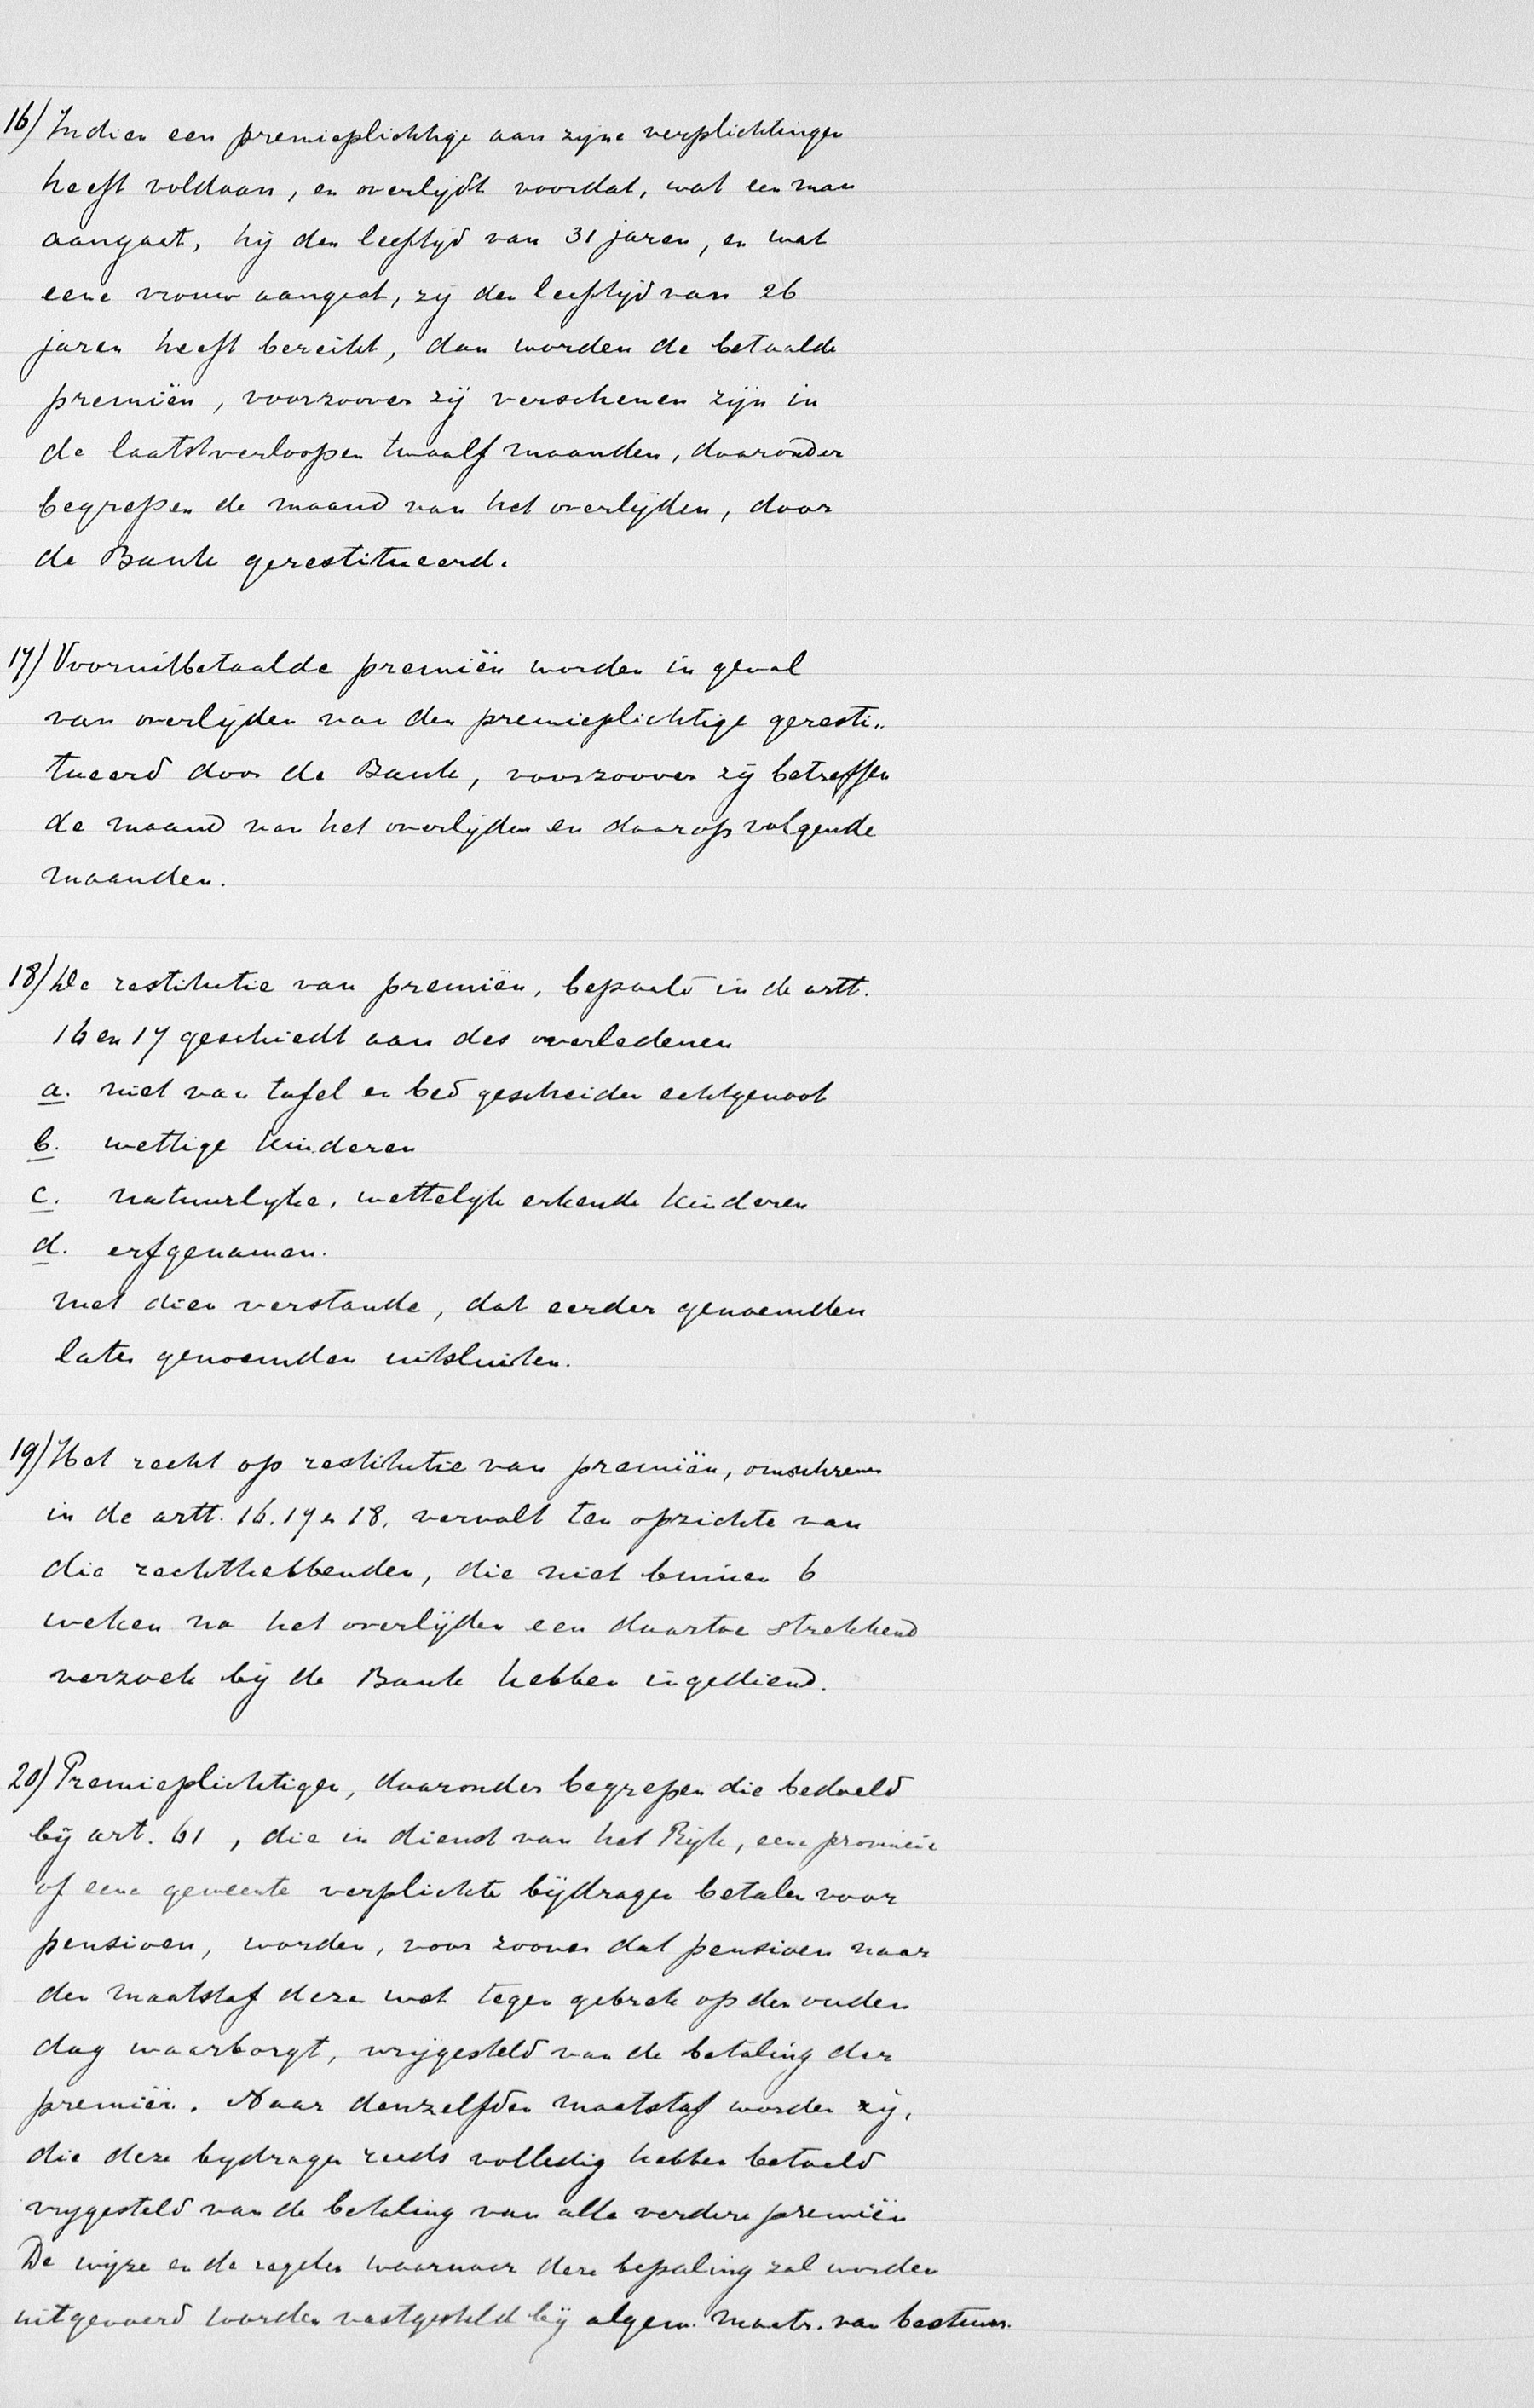 16) Indien een premieplichtige aan zijne verplichtingen
heeft voldaan, en overlijdt voordat, wat een man
aangaat, hij den leeftijd van 31 jaren, en wat
eene vrouw aangaat, zij den leeftijd van 26
jaren heeft bereikt, dan worden de betaalde
premiën, voorzoover zij verschenen zijn in
de laatstverloopen twaalf maanden, daaronder
begrepen de maand van het overlijden, door
de Bank gerestitueerd.
17) Vooruitbetaalde premiën worden in geval
van overlijden van den premieplichtige geresti„
tueerd door de Bank, voorzoover zij betreffen
de maand van het overlijden en daarop volgende
maanden.
18) De restitutie van premiën, bepaald in de artt.
16 en 17 geschiedt aan des overledenen
a. niet van tafel en bed gescheiden echtgenoot
b. wettige kinderen
c. natuurlyke, wettelijk erkende kinderen
d. erfgenamen.
met dien verstande, dat eerder genoemden
later genoemden uitsluiten.
19) Het recht op restitutie van premiën, omschreven
in de artt. 16. 17 en 18, vervalt ten opzichte van
die rechthebbenden, die niet binnen 6
weken na het overlijden een daartoe strekkend
verzoek bij de Bank hebben ingediend.
20) Premieplichtigen, daaronder begrepen die bedoeld
bij art. 61, die in dienst van het Rijk, eene provincie
of eene gemeente verplichte bijdragen betalen voor
pensioen, worden, voor zoover dat pensioen naar
den maatstaf dezer wet tegen gebrek op den ouden
dag waarborgt, vrijgesteld van de betaling der
premiën. Naar denzelfden maatstaf worden zij,
die deze bydragen reeds volledig hebben betaald
vrygesteld van de betaling van alle verdere premiën
De wijze en de regelen waarnaar deze bepaling zal worden
uitgevoerd worden vastgesteld bij algem. maatr. van bestuur.